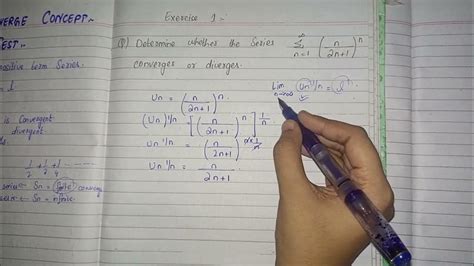 VERGE CONCEPT:-
TEST:-
positive term Series.
is Convergent
divergent
1/2 + 1/2 + 1/4
Sn = finite converge
Sn = infinite
Exercise 1:-
Q) Determine whether the Series ∞∑n=1 (n/2n+1)^n
converges or diverges.
Un = (n/2n+1)^n.
(Un)^1/n = [(n/2n+1)^n]^1/n
Un^1/n = (n/2n+1)^n×1/n
Un^1/n = n/2n+1
Lim n→∞ Un^1/n = l